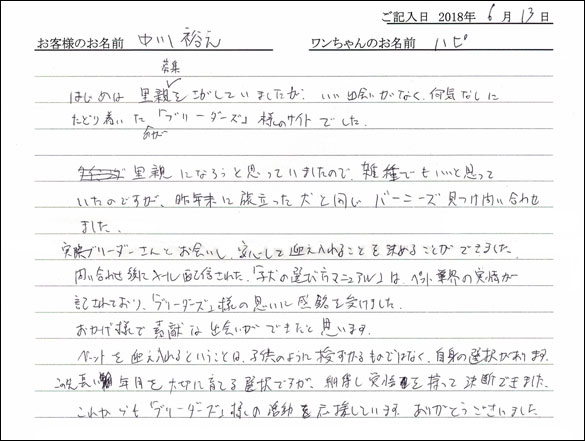 ご記入日 2018年 6月 13日
お客様のお名前 中川 裕元 ワンちゃんのお名前 ハピ
募集
はじめは 里親をさがしていましたが、いい出会いがなく、何気なしに
たどり着いた「ブリーダーズ」様のサイトでした。
のが
里親になろうと思っていましたので、雑種でもいいと思って
いたのですが、昨年末に旅立った犬と同じ バーニーズ 見つけ問い合わせ
ました。
実際ブリーダーさんとお会いし、安心して迎え入れることを決めることができました。
問い合わせ後にメール配信された、「子犬の選び方マニュアル」は、ペット業界の実情が
記されており、「ブリーダーズ」様の思いに感銘を受けました。
おかげ様で 素敵な出会いができたと思います。
ペットを迎え入れるということは、子供のように授かるものではなく、自身の選択があります。
この先長い年月を大切に育てる選択ですが、納得し を持って決断できました。
これからも「ブリーダーズ」様の活動を応援しています。ありがとうございました。